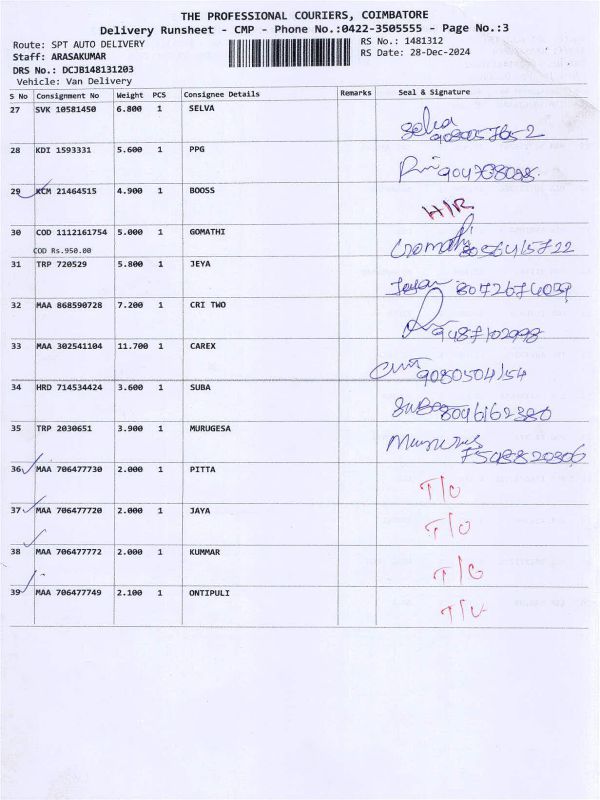 THE PROFESSIONAL COURIERS, COIMBATORE
Delivery Runsheet - CMP - Phone No.:0422-3505555 - Page No.:3
Route: SPT AUTO DELIVERY
RS No.: 1481312
Staff: ARASAKUMAR
RS Date: 28-Dec-2024
DRS No.: DCJB148131203
Vehicle: Van Delivery
S No Consignment No Weight PCS Consignee Details Remarks Seal & Signature
27 SVK 10581450 6.800 1 SELVA
Selva
28 KDI 1593331 5.600 1 PPG
29 KCM 21464515 4.900 1 BOOSS
H/R
30 COD 1112161754 5.000 1 GOMATHI
COD Rs.950.00
Gomathi 8056415722
31 TRP 720529 5.800 1 JEYA
8072674039
32 MAA 868590728 7.200 1 CRI TWO
9487102998
33 MAA 302541104 11.700 1 CAREX
9080504154
34 HRD 714534424 3.600 1 SUBA
Suba 8046162380
35 TRP 2030651 3.900 1 MURUGESA
7548820306
36 MAA 706477730 2.000 1 PITTA
T/O
37 MAA 706477720 2.000 1 JAYA
T/O
38 MAA 706477772 2.000 1 KUMMAR
T/O
39 MAA 706477749 2.100 1 ONTIPULI